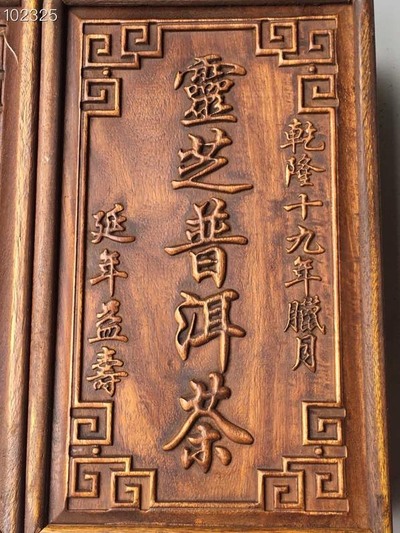 102325
乾隆十九年臘月
靈芝普洱茶
延年益壽